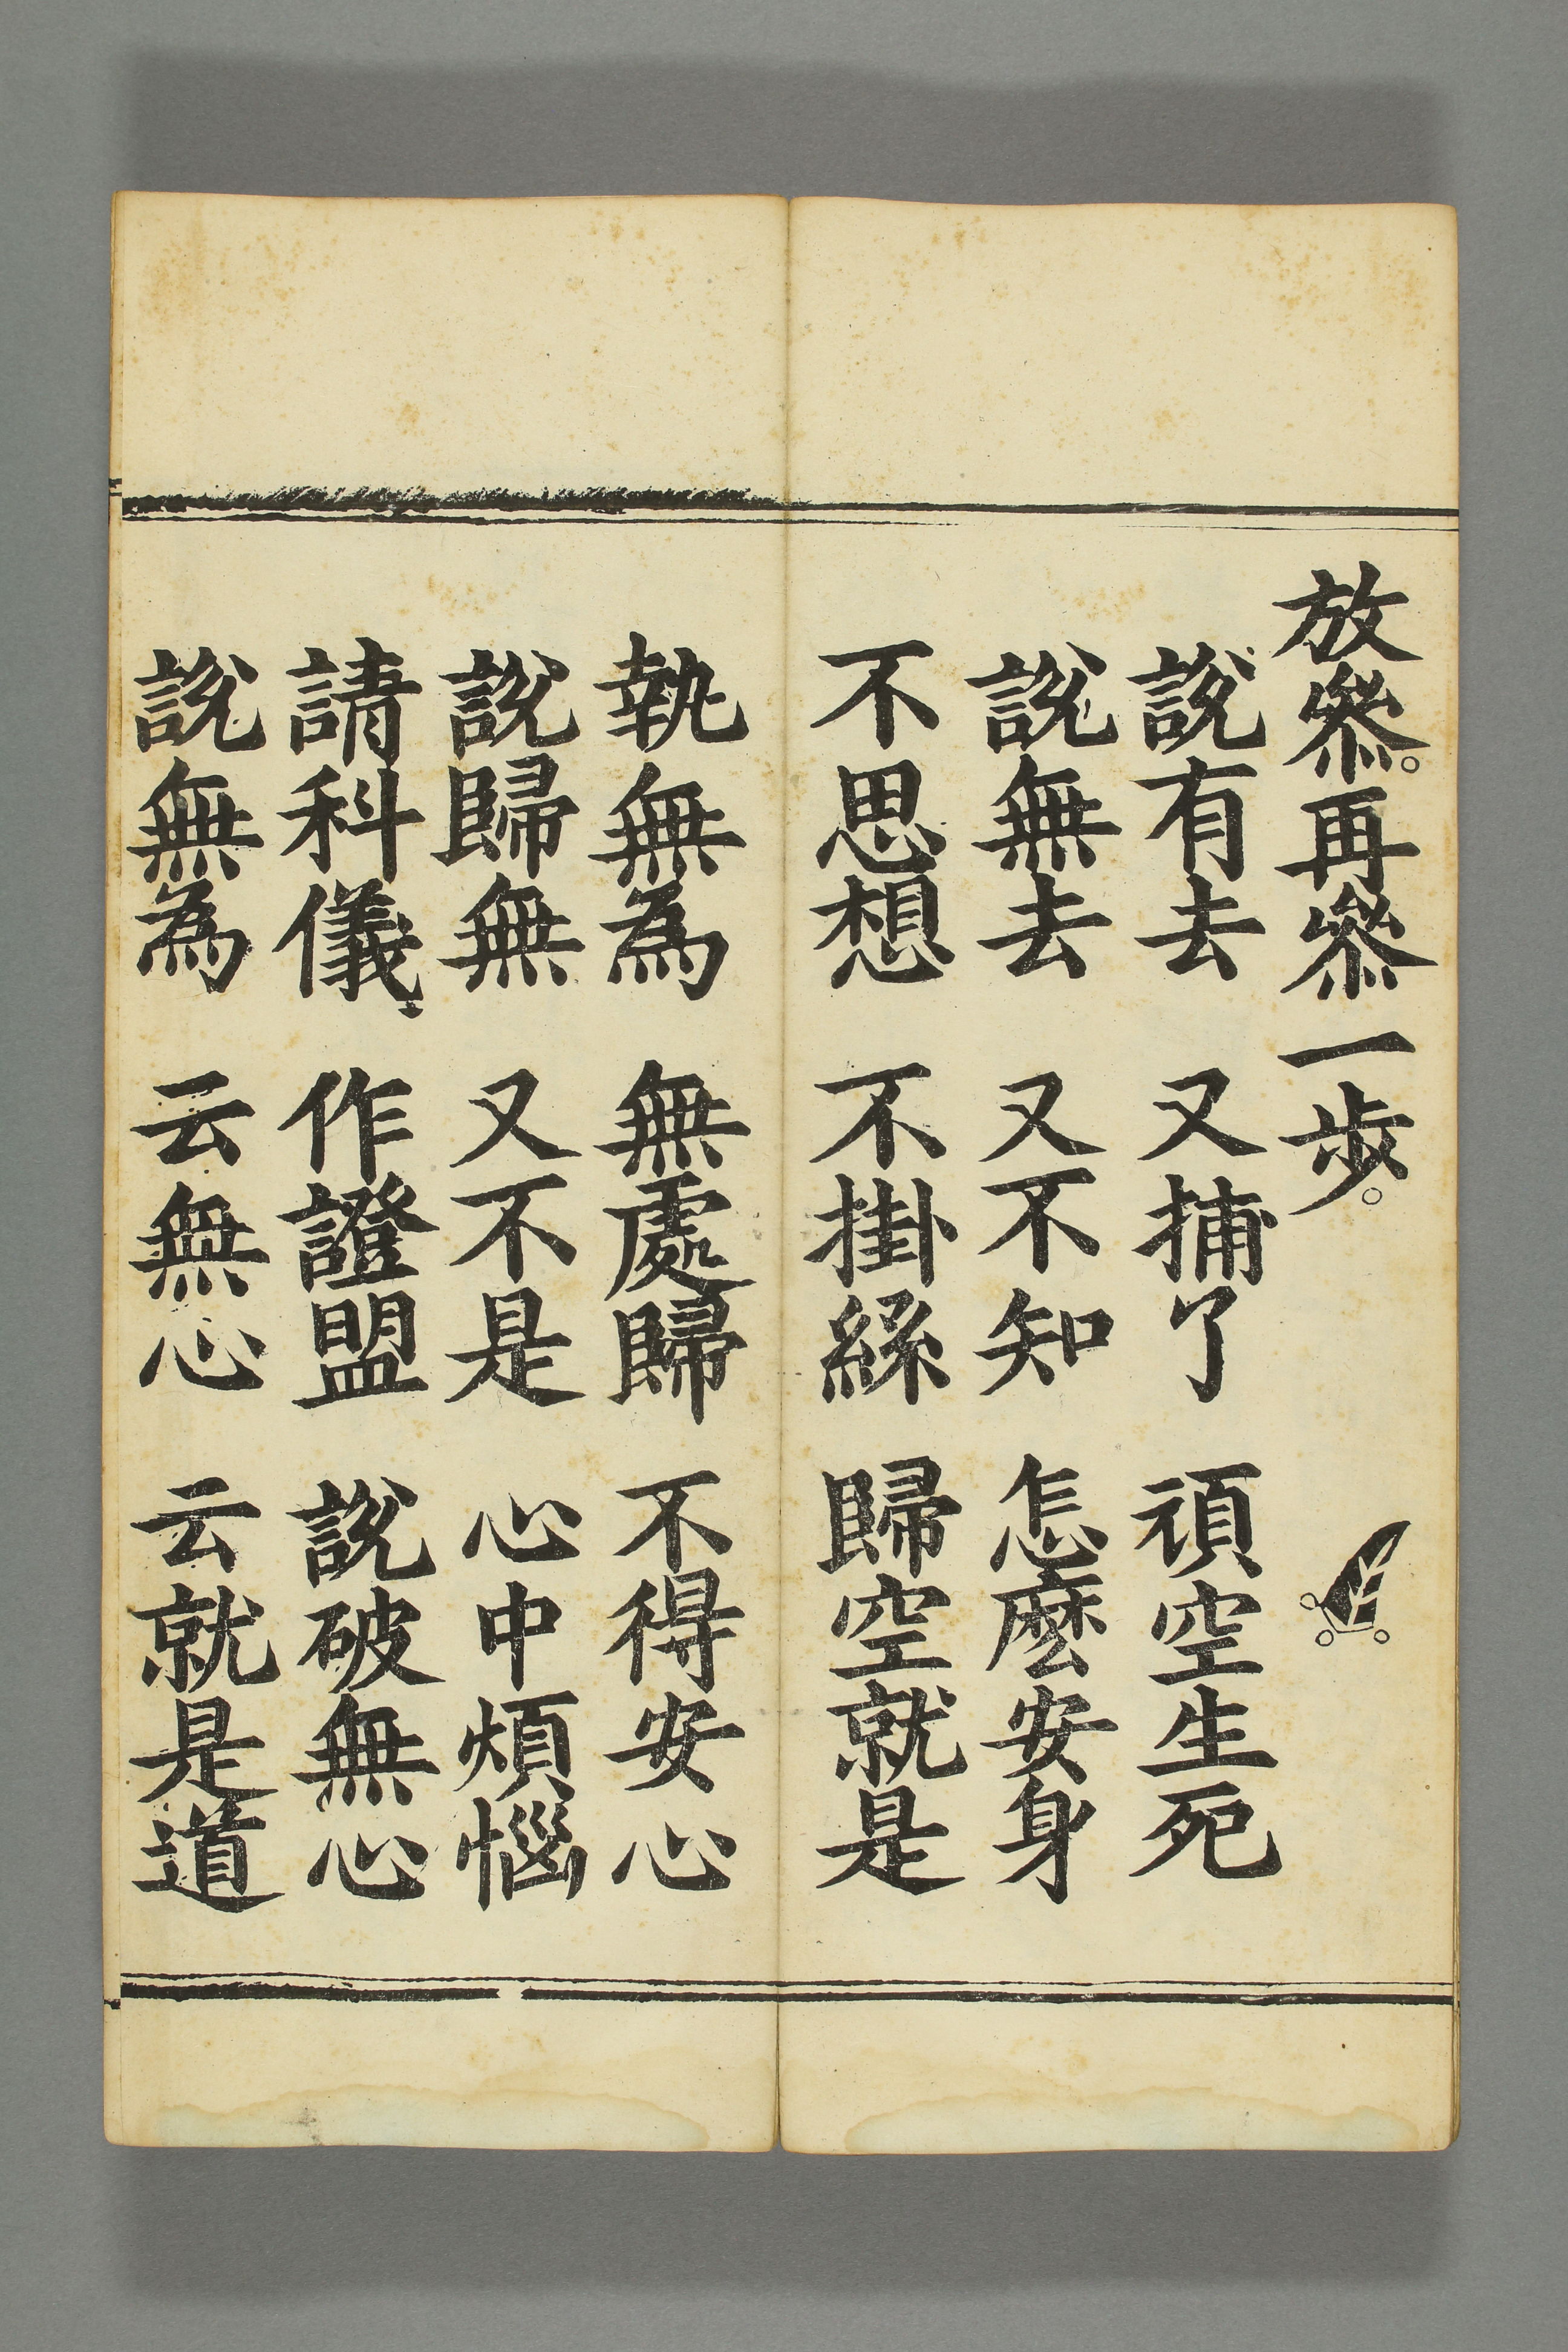 放參。再參一步。
說有去 又捕了 頑空生死
說無去 又不知 怎麽安身
不思想 不掛絲 歸空就是
執無為 無處歸 不得安心
說歸無 又不是 心中煩惱
請科儀 作證盟 說破無心
說無為 云無心 云就是道